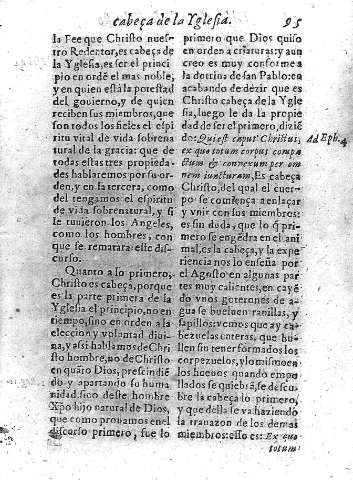 cabeça de la Yglesia. 95
la Fee que Christo nues-
tro Redentor, es cabeça de
la Yglesia, es ser el princi
pio en ordē el mas noble,
y en quien està la potestad
del gouierno, y de quien
reciben sus miembros, que
son todos los fieles el espi
ritu vital de vida sobrena
tural de la gracia: que de
todas estas tres propieda-
des hablaremos por su or-
den, y en la tercera, como
del tengamos el espiritu
de vida sobrenatural, y si
le tuuieron los Angeles,
como los hombres; con
que se rematara este dis-
curso.
Quanto a lo primero,
Christo es cabeça, porque
es la parte primera de la
Yglesia el principio, no en
tiempo, sino en orden a la
eleccion y voluntad diui-
na, y assi hablamos de Chri
sto hombre, no de Christo
en quāto Dios, prescindiē
do y apartando su huma
nidad sino deste hombre
Xp̄o hijo natural de Dios,
que como prouamos en el
discurso primero, fue lo
primero que Dios quiso
en orden a criaturas: y aun
creo es muy conforme a
la dotrina de san Pablo: en
acabando de dezir que es
Christo cabeça de la Ygle
sia, luego le da la propie
dad de ser el primero, diziē
do: Qui est caput Christus,
ex quo totum corpus compa
ctum & connexum per om
nem iuncturam, Es cabeça
Christo, del qual el cuer-
po se comiença a enlaçar
y vnir con sus miembros:
es sin duda, que lo q̄ pri-
mero se engēdra en el ani
mal, es la cabeça, y la expe
riencia nos lo enseña por
el Agosto en algunas par
tes muy calientes, en cayē
do vnos goterones de a-
gua se bueluen ranillas, y
sapillos: vemos que ay ca-
beçuelas enteras, que bu-
llen sin tener formados los
corpezuelos, y lo mismo en
los hueuos quando empo
llados se quiebrā, se descu-
bre la cabeça lo primero,
y que della se va haziendo
la trauazon de los demas
miembros: esso es: Ex quo
totum
Ad Eph. 4